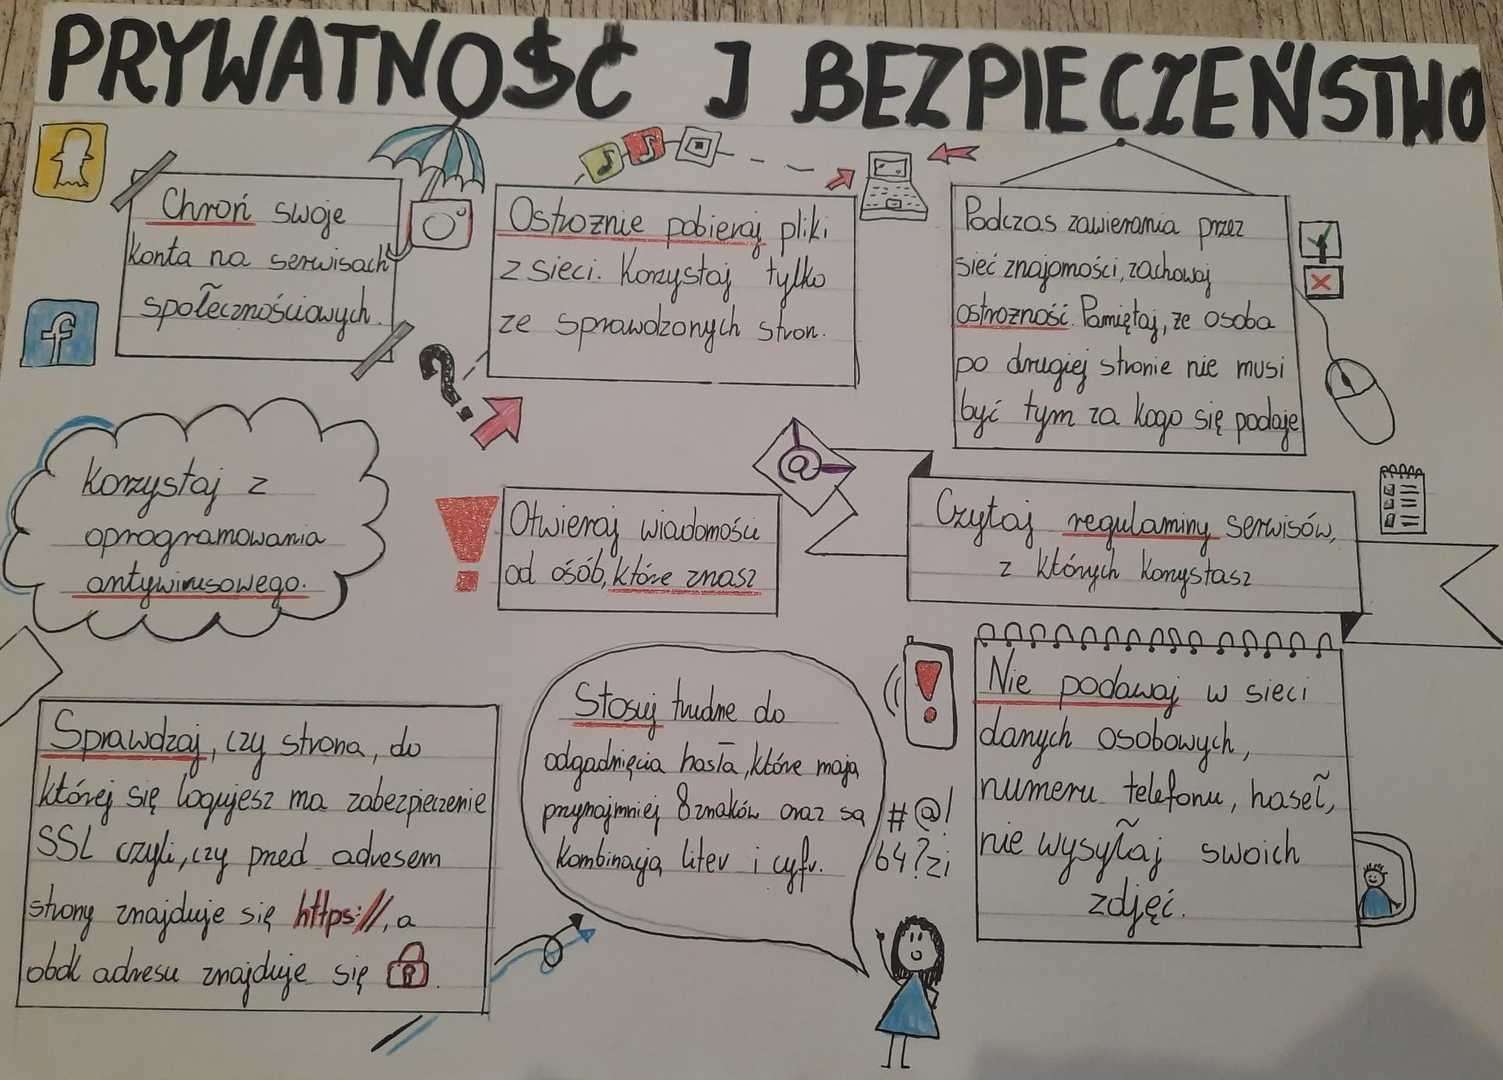 PRYWATNOŚĆ I BEZPIECZEŃSTWO
Chroń swoje
konta na serwisach
społecznościowych.
Ostrożnie pobieraj pliki
z sieci. Korzystaj tylko
ze sprawdzonych stron.
Podczas zawierania przez
sieć znajomości, zachowaj
ostrożność. Pamiętaj, że osoba
po drugiej stronie nie musi
być tym za kogo się podaje
f
?
Korzystaj z
oprogramowania
antywirusowego.
!
Otwieraj wiadomości
od osób, które znasz
@
Czytaj regulaminy serwisów,
z których korzystasz
Sprawdzaj, czy strona, do
której się logujesz ma zabezpieczenie
SSL czyli, czy przed adresem
strony znajduje się https://, a
obok adresu znajduje się
Stosuj trudne do
odgadnięcia hasła, które mają
przynajmniej 8 znaków oraz są
kombinacją liter i cyfr.
!
#@!
64?zi
Nie podawaj w sieci
danych osobowych,
numeru telefonu, haseł,
nie wysyłaj swoich
zdjęć.